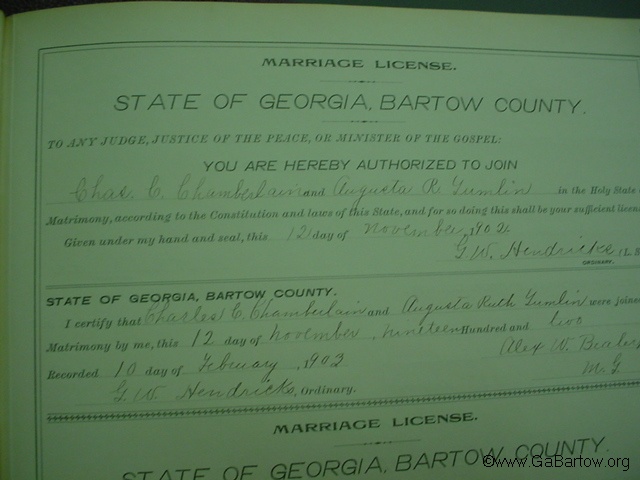 MARRIAGE LICENSE.
STATE OF GEORGIA, BARTOW COUNTY.
TO ANY JUDGE, JUSTICE OF THE PEACE, OR MINISTER OF THE GOSPEL:
YOU ARE HEREBY AUTHORIZED TO JOIN
Chas. C. Chamberlain and Augusta R. Tumlin in the Holy State
Matrimony, according to the Constitution and laws of this State, and for so doing this shall be your sufficient licens
Given under my hand and seal, this 12 day of November, 1902
G. W. Hendricks, (L. S
ORDINARY.
STATE OF GEORGIA, BARTOW COUNTY.
I certify that Charles C. Chamberlain and Augusta Ruth Tumlin were joined
Matrimony by me, this 12 day of November, nineteen Hundred and two
Alex W. Bealer
Recorded 10 day of February, 1903
M. G
G. W. Hendricks, Ordinary.
MARRIAGE LICENSE.
STATE OF GEORGIA, BARTOW COUNTY.
©www.GaBartow.org